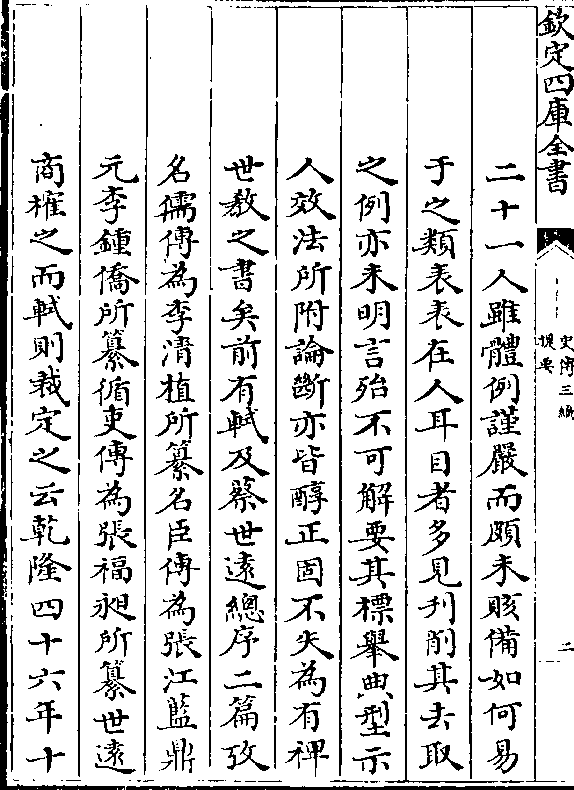 欽定四庫全書
史傳三編
提要
二
二十一人雖體例謹嚴而頗未賅備如何易
于之類表表在人耳目者多見刋削其去取
之例亦未明言殆不可解要其標舉典型示
人效法所附論斷亦皆醇正固不失為有裨
世教之書矣前有軾及蔡世遠總序二篇攷
名儒傳為李清植所纂名臣傳為張江藍鼎
元李鍾僑所纂循吏傳為張福昶所纂世遠
商榷之而軾則裁定之云乾隆四十六年十